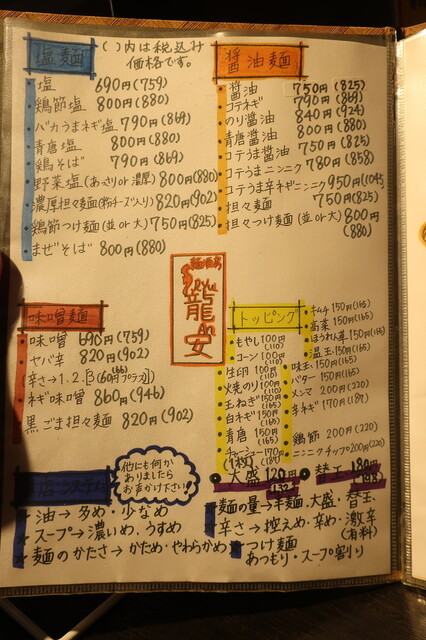 塩麺
( )内は税込み
価格です。
塩 690円(759)
鶏節塩 800円(880)
バカうまネギ塩 790円(869)
青唐塩 800円(880)
鶏そば 790円(869)
野菜塩(あっさりor濃厚) 800円(880)
濃厚担々麺(粉チーズ入り) 820円(902)
鶏節つけ麺(並or大) 750円(825)
まぜそば 800円(880)
醤油麺
醤油 750円(825)
コテネギ 790円(869)
のり醤油 840円(924)
青唐醤油 800円(880)
コテうま醤油 750円(825)
コテうまニンニク 780円(858)
コテうま辛ネギニンニク 950円(1045)
担々麺 750円(825)
担々つけ麺(並or大) 800円
(880)
龍
安
味噌麺
味噌 690円(759)
ヤバ辛 820円(902)
辛さ→1.2.3(60円プラス)
(66)
ネギ味噌 860円(946)
黒ごま担々麺 820円(902)
トッピング
もやし 100円
(110)
コーン 100円
(110)
生卵 100円
(110)
火焼のり 100円
(110)
玉ねぎ 150円
(165)
白ネギ 150円
(165)
青唐 150円
(165)
チャーシュー 170円
(1枚) (187)
キムチ 150円(165)
高菜 150円(165)
ほうれん草 150円(165)
温玉 150円(165)
味玉 150円(165)
バター 150円(165)
メンマ 200円(220)
辛ネギ 170円(187)
鶏節 200円(220)
ニンニクチップ 200円(220)
大盛 120円
(132)
替玉 180円
(198)
他にも何か
ありましたら
お声かけ下さい
油→多め・少なめ
スープ→濃いめ、うすめ
麺のかたさ→かため・やわらかめ
麺の量→半麺、大盛・替玉
辛さ→控えめ・辛め・激辛
(有料)
つけ麺
あつもり・スープ割り